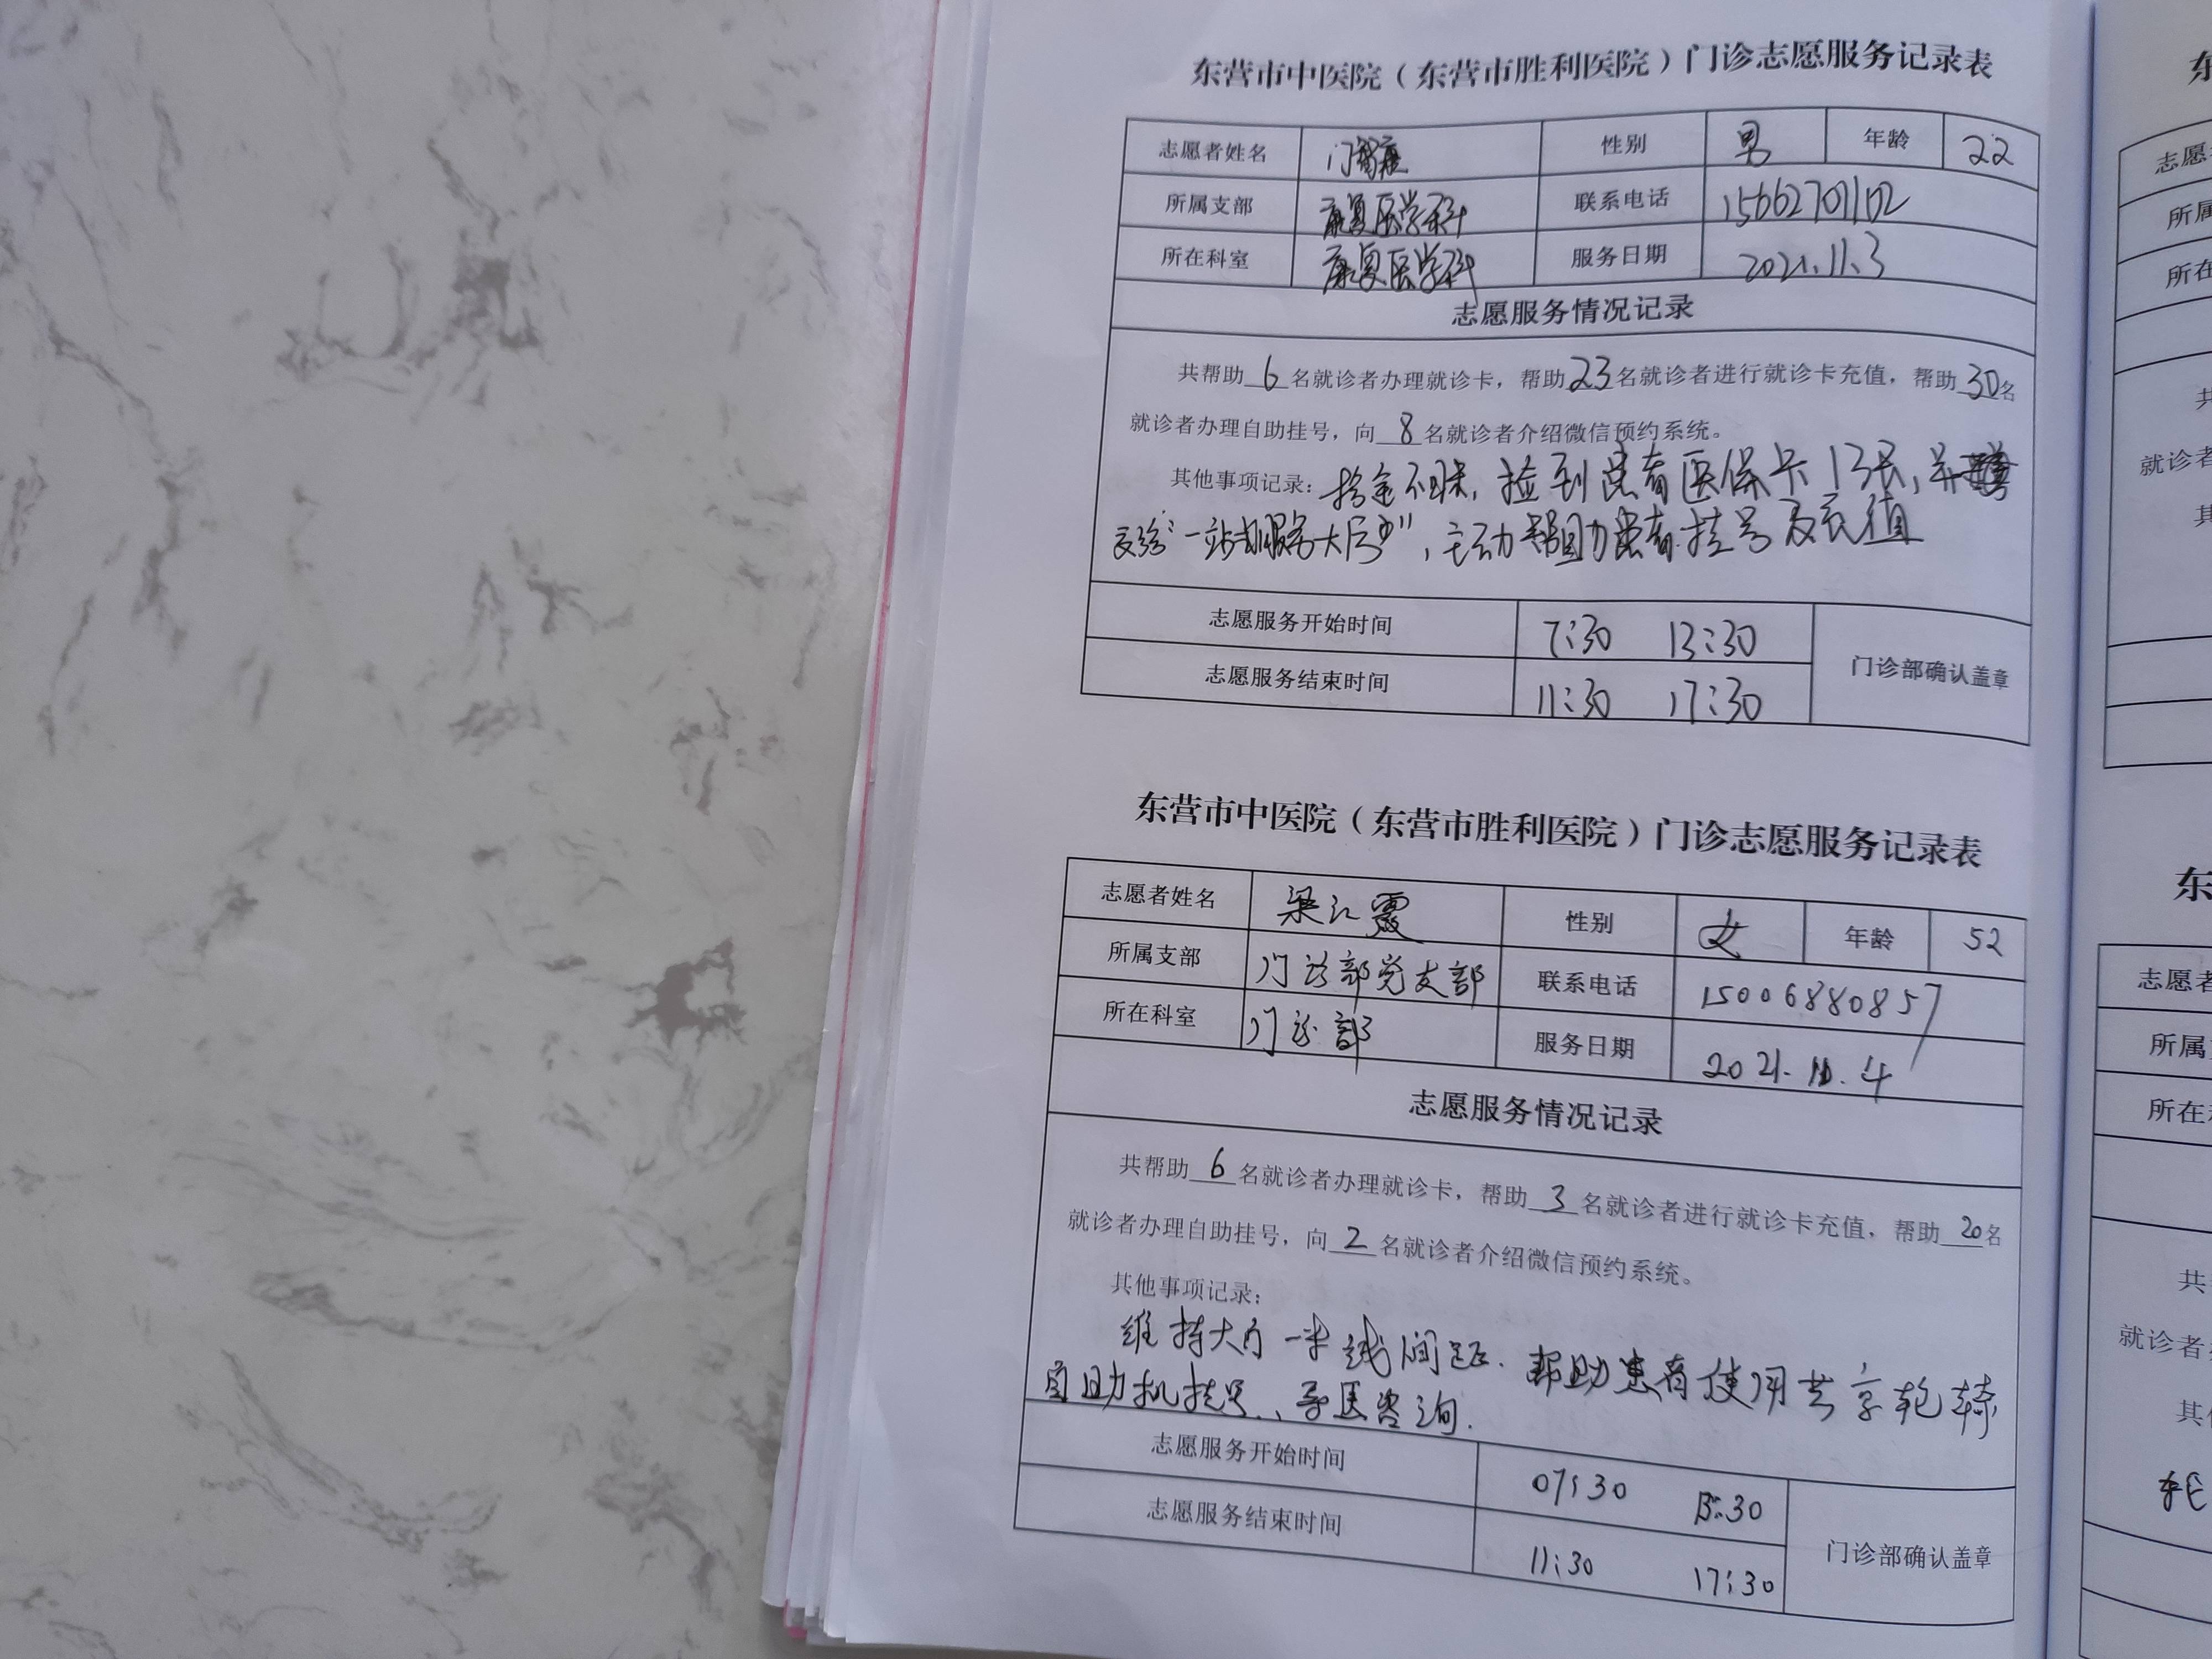 东营市中医院（东营市胜利医院）门诊志愿服务记录表
志愿者姓名 门 性别 男 年龄 22
所属支部 康复医学科 联系电话
所在科室 康复医学科 服务日期 2021.11.3
志愿服务情况记录
共帮助6名就诊者办理就诊卡，帮助23名就诊者进行就诊卡充值，帮助30名
就诊者办理自助挂号，向8名就诊者介绍微信预约系统。
其他事项记录：拾金不昧，捡到患者医保卡13张，并
交给“一站式服务大厅”，主动帮助患者挂号及充值
志愿服务开始时间 7:30 13:30
志愿服务结束时间 11:30 17:30
门诊部确认盖章
东营市中医院（东营市胜利医院）门诊志愿服务记录表
志愿者姓名 梁江霞 性别 女 年龄 52
所属支部 门诊部党支部 联系电话 15006880857
所在科室 门诊部 服务日期 2021.11.4
志愿服务情况记录
共帮助6名就诊者办理就诊卡，帮助3名就诊者进行就诊卡充值，帮助20名
就诊者办理自助挂号，向2名就诊者介绍微信预约系统。
其他事项记录：
维持大厅一米线间距.帮助患者使用共享轮椅
自助机挂号、导医咨询.
志愿服务开始时间 07:30 13:30
志愿服务结束时间 11:30 17:30
门诊部确认盖章
东
志愿
所属
所在
共
就诊者
其
东
志愿者
所属
所在
共
就诊者
其
轮